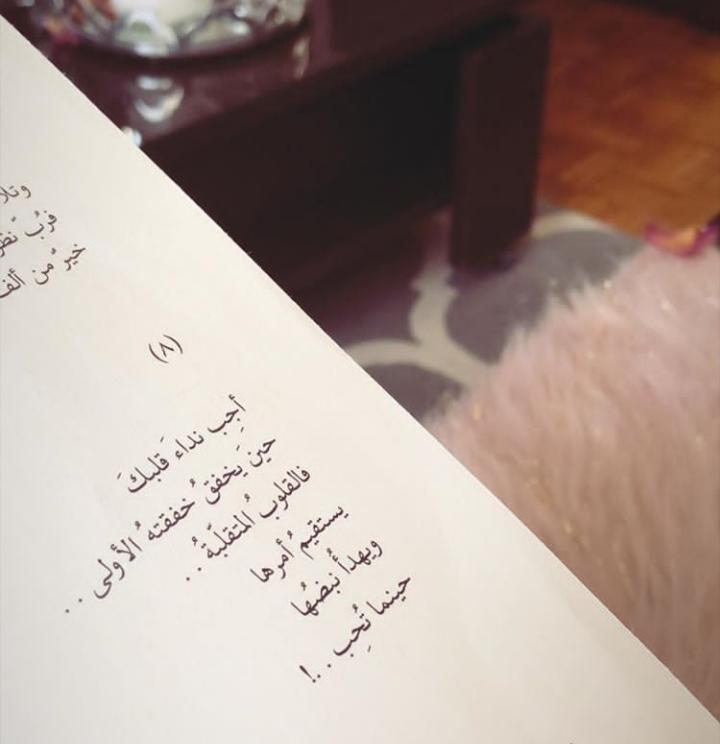 وتلا
فرُبّ نظر
خيرٌ من ألف
(٨)
أجِب نداءَ قلبكَ
حين يَخفقُ خفقتهُ الأولى . .
فالقلوبُ المتقلّبةُ . .
يستقيمُ أمرها
ويهدأُ نبضُها
حينما تُحِب . . !